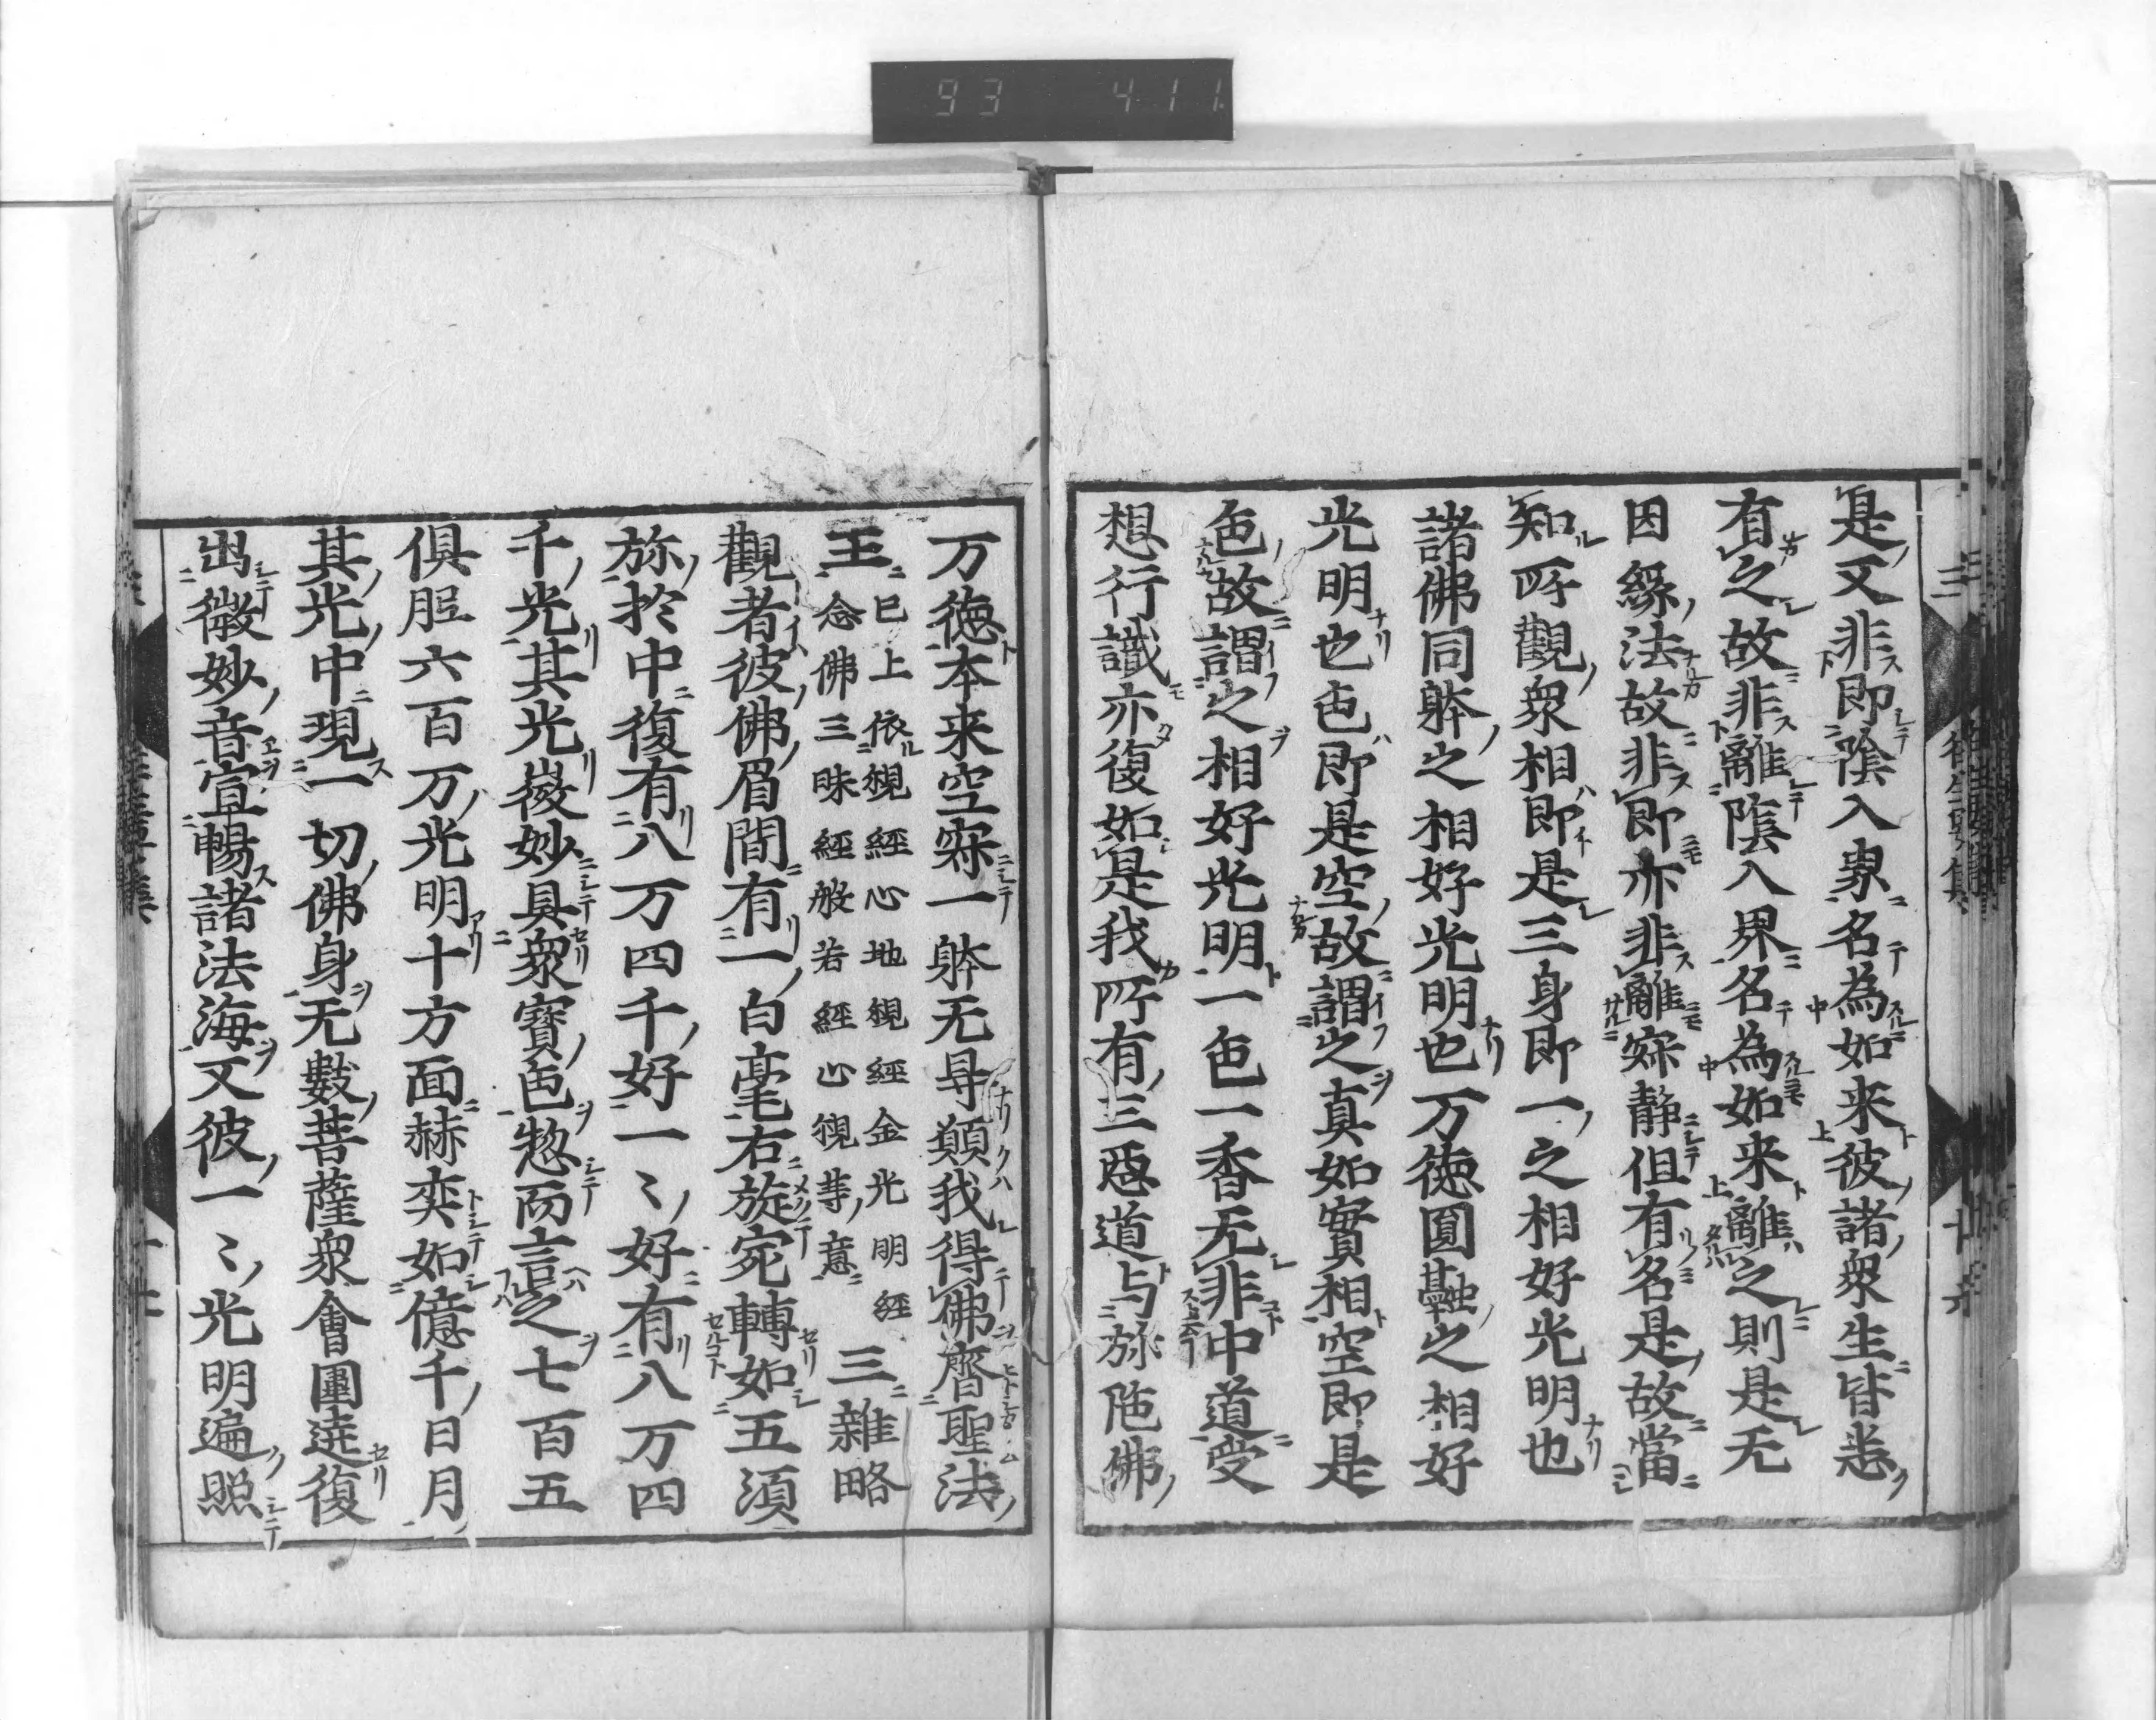 93 411
是又非即陰入界名為如来彼諸衆生皆悉
有之故非離陰入界名為如来離之則是无
因緣法故非即亦非離寂静但有名是故當
知所觀衆相即是三身即一之相好光明也
諸佛同躰之相好光明也万徳圓融之相好
光明也色即是空故謂之真如實相空即是
色故謂之相好光明一色一香无非中道受
想行識亦復如是我所有三惡道与弥陁佛
万徳本来空寂一躰无㝵願我得佛齊聖法
王
已上依觀經心地觀經金光明經
念佛三昧經般若經心觀等意
三雜略
觀者彼佛眉間有一白毫右旋宛轉如五須
弥於中復有八万四千好一〻好有八万四
千光其光微妙具衆寶色惣而言之七百五
俱胝六百万光明十方面赫奕如億千日月
其光中現一切佛身无數菩薩衆會圍遶復
出微妙音宣暢諸法海又彼一〻光明遍照